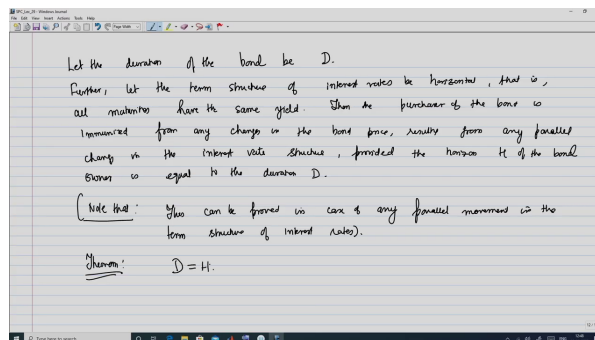 SPC_Lec_29 - Windows Journal
File Edit View Insert Actions Tools Help
Page Width
Let the duration of the bond be D.
Further, let the term structure of interest rates be horizontal, that is,
all maturities have the same yield. Then the purchaser of the bond is
immunized from any changes in the bond price, results from any parallel
change in the interest rate structure, provided the horizon H of the bond
owner is equal to the duration D.
(Note that: This can be proved in case of any parallel movement in the
term structure of interest rates).
Theorem: D = H.
Type here to search
ENG